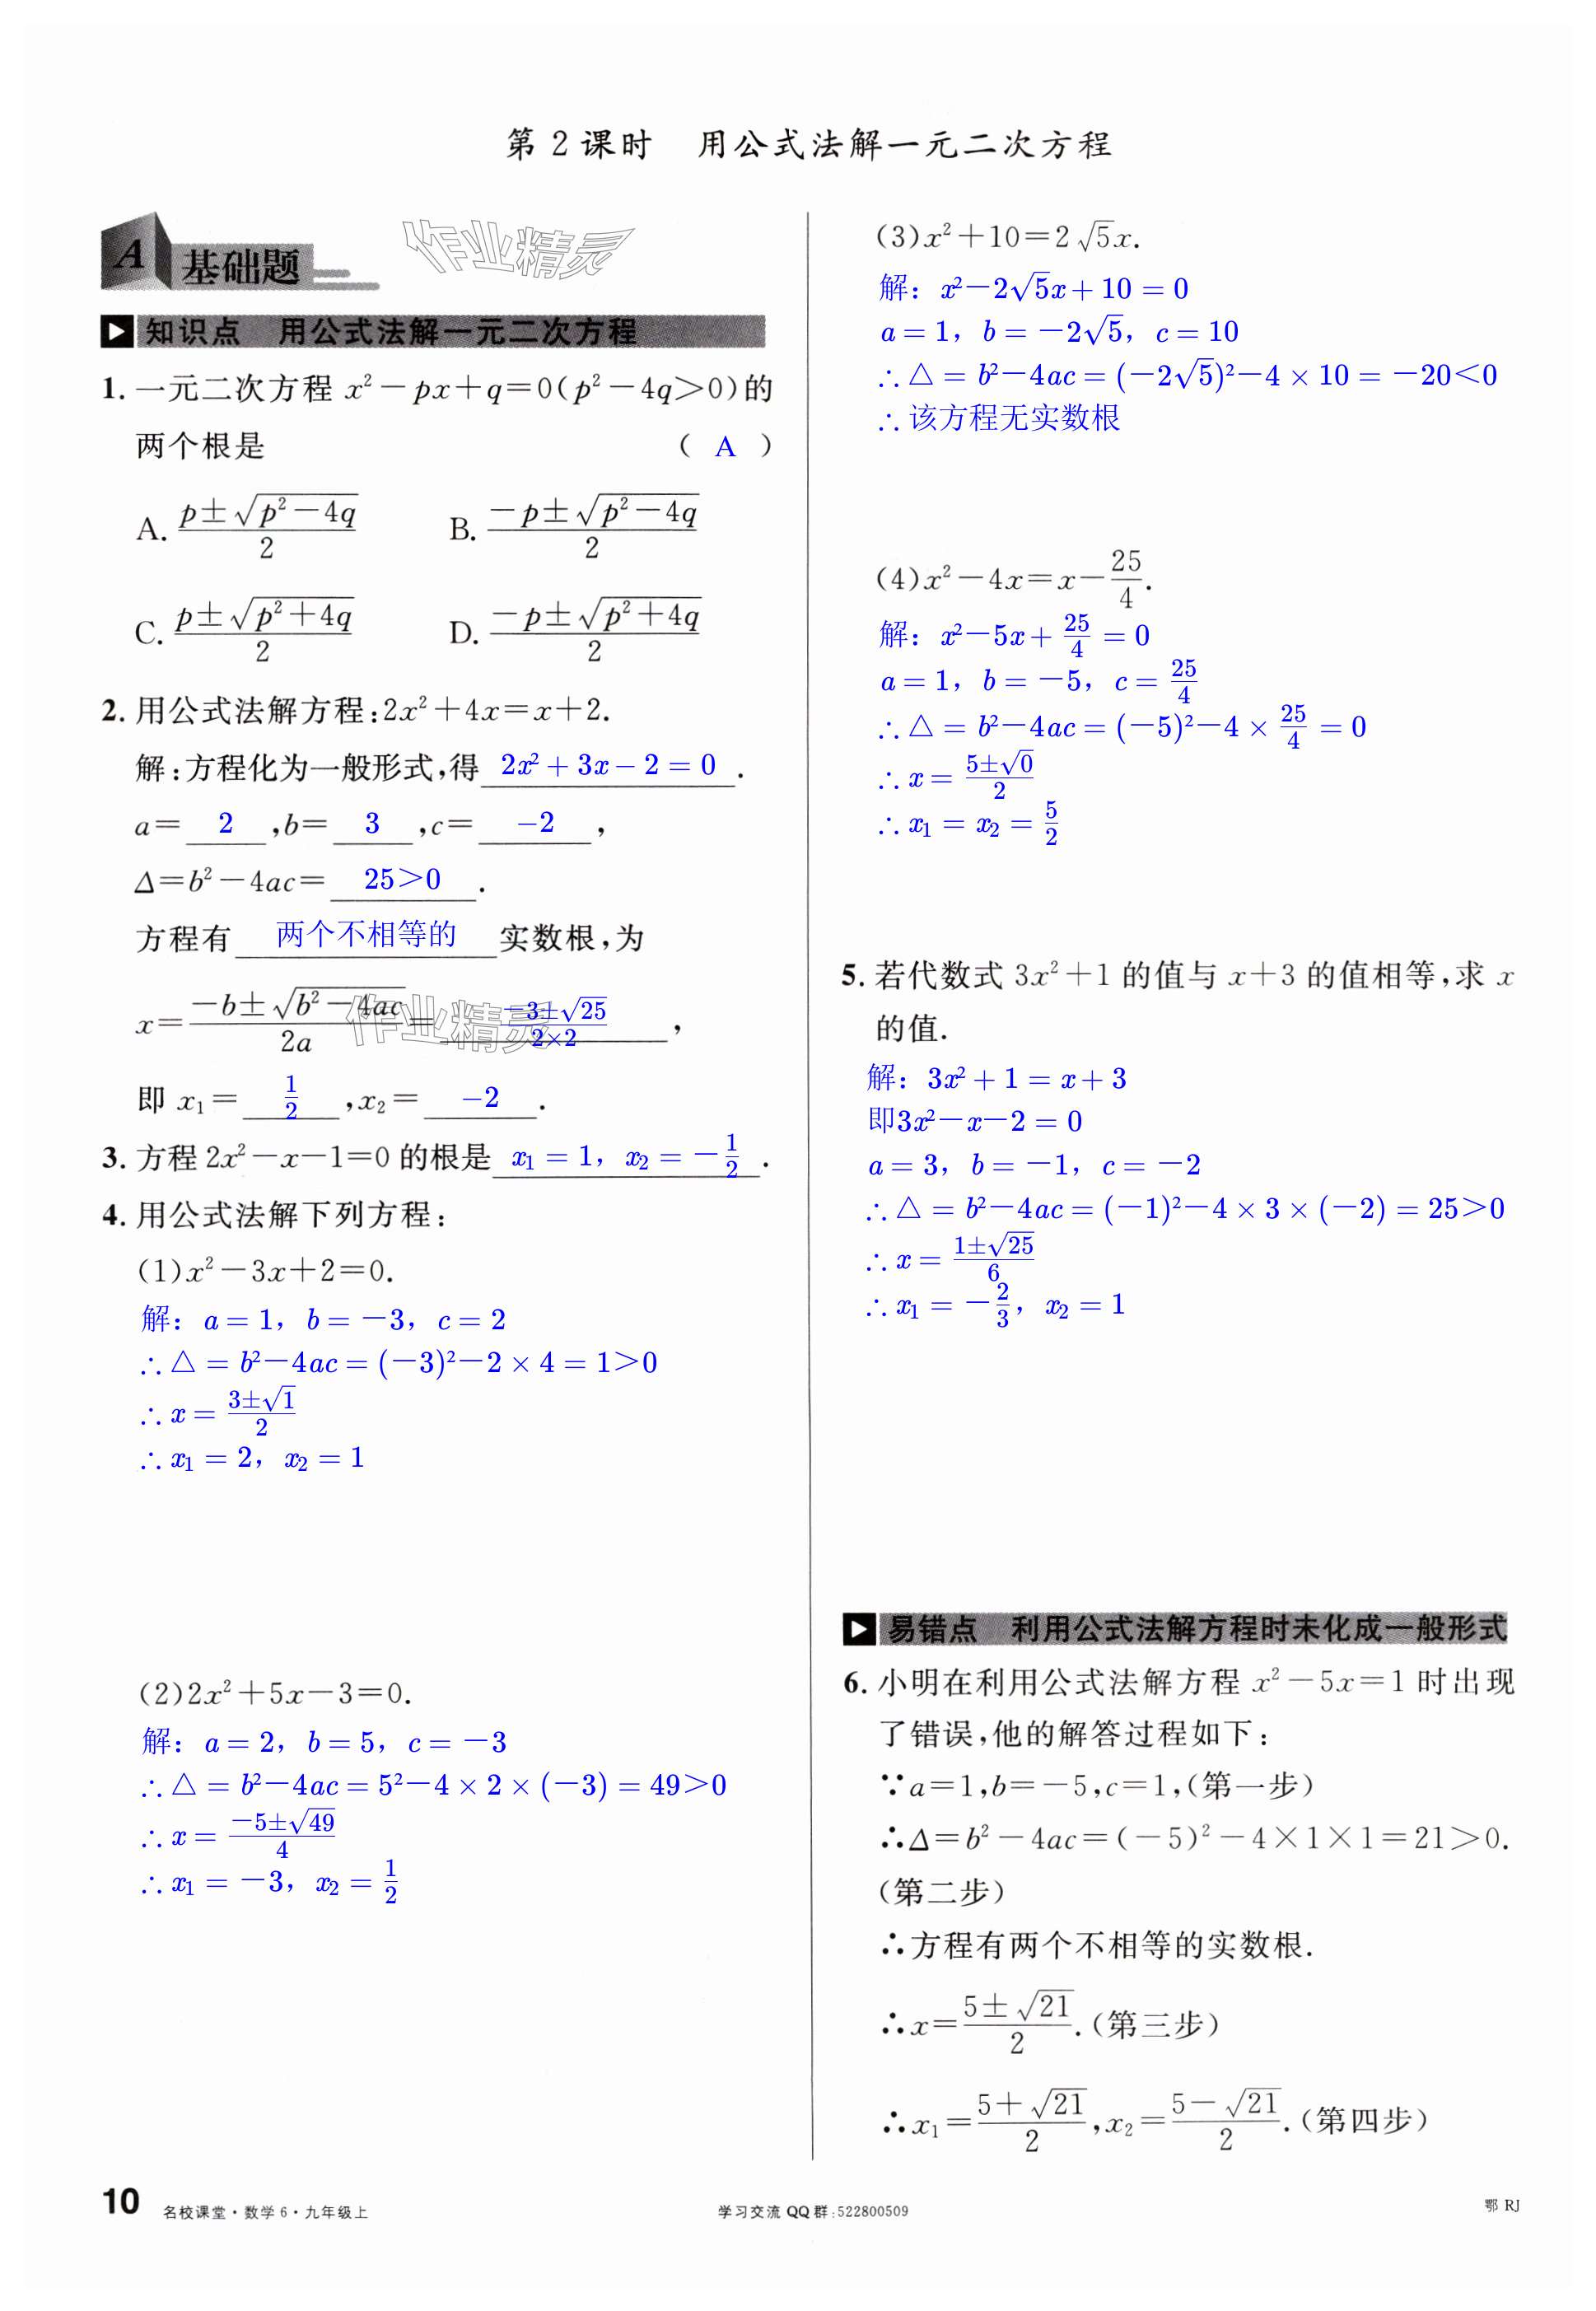 第 2 课时　用公式法解一元二次方程
A 基础题
作业精灵
知识点　用公式法解一元二次方程
1. 一元二次方程 x²－px＋q＝0(p²－4q＞0)的
两个根是 （ A ）
A. (p±√(p²－4q))/2　B. (－p±√(p²－4q))/2
C. (p±√(p²＋4q))/2　D. (－p±√(p²＋4q))/2
2. 用公式法解方程:2x²＋4x＝x＋2.
解:方程化为一般形式,得 2x²＋3x－2＝0 .
a＝ 2 ,b＝ 3 ,c＝ －2 ,
Δ＝b²－4ac＝ 25＞0 .
方程有 两个不相等的 实数根,为
x＝(－b±√(b²－4ac))/2a＝ (－3±√25)/(2×2) ,
作业精灵
即 x₁＝ 1/2 ,x₂＝ －2 .
3. 方程 2x²－x－1＝0 的根是 x₁＝1，x₂＝－1/2 .
4. 用公式法解下列方程:
(1)x²－3x＋2＝0.
解：a＝1，b＝－3，c＝2
∴△＝b²－4ac＝(－3)²－2×4＝1＞0
∴x＝(3±√1)/2
∴x₁＝2，x₂＝1
(2)2x²＋5x－3＝0.
解：a＝2，b＝5，c＝－3
∴△＝b²－4ac＝5²－4×2×(－3)＝49＞0
∴x＝(－5±√49)/4
∴x₁＝－3，x₂＝1/2
(3)x²＋10＝2√5x.
解：x²－2√5x＋10＝0
a＝1，b＝－2√5，c＝10
∴△＝b²－4ac＝(－2√5)²－4×10＝－20＜0
∴该方程无实数根
(4)x²－4x＝x－25/4.
解：x²－5x＋25/4＝0
a＝1，b＝－5，c＝25/4
∴△＝b²－4ac＝(－5)²－4×25/4＝0
∴x＝(5±√0)/2
∴x₁＝x₂＝5/2
5. 若代数式 3x²＋1 的值与 x＋3 的值相等,求 x
的值.
解：3x²＋1＝x＋3
即3x²－x－2＝0
a＝3，b＝－1，c＝－2
∴△＝b²－4ac＝(－1)²－4×3×(－2)＝25＞0
∴x＝(1±√25)/6
∴x₁＝－2/3，x₂＝1
易错点　利用公式法解方程时未化成一般形式
6. 小明在利用公式法解方程 x²－5x＝1 时出现
了错误,他的解答过程如下:
∵a＝1,b＝－5,c＝1,(第一步)
∴Δ＝b²－4ac＝(－5)²－4×1×1＝21＞0.
(第二步)
∴方程有两个不相等的实数根.
∴x＝(5±√21)/2.(第三步)
∴x₁＝(5＋√21)/2,x₂＝(5－√21)/2.(第四步)
10 名校课堂·数学6·九年级上　学习交流 QQ 群:522800509　鄂 RJ